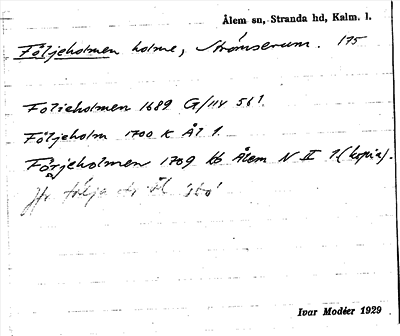 Ålem sn, Stranda hd, Kalm. l.
Följeholmen holme, Strömserum. 175
Folieholmen 1689 G/IIV 561
Följeholm 1700 K Ål 1
Förjeholmen 1709 kb Ålem N II 1 (kopia).
Jfr följa
Ivar Modéer 1929